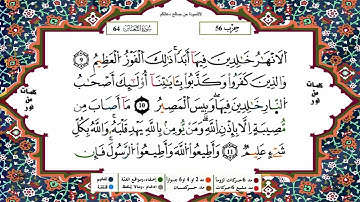 لاتنسونا من صالح دعائكم
حزب 56
سورة التغابن 64
ٱلۡأَنۡهَٰرُ خَٰلِدِينَ فِيهَآ أَبَدٗاۚ ذَٰلِكَ ٱلۡفَوۡزُ ٱلۡعَظِيمُ ٩
وَٱلَّذِينَ كَفَرُواْ وَكَذَّبُواْ بِـَٔايَٰتِنَآ أُوْلَٰٓئِكَ أَصۡحَٰبُ
ٱلنَّارِ خَٰلِدِينَ فِيهَاۖ وَبِئۡسَ ٱلۡمَصِيرُ ١٠ مَآ أَصَابَ مِن
مُّصِيبَةٍ إِلَّا بِإِذۡنِ ٱللَّهِۗ وَمَن يُؤۡمِنۢ بِٱللَّهِ يَهۡدِ قَلۡبَهُۥۚ وَٱللَّهُ بِكُلِّ
شَيۡءٍ عَلِيمٞ ١١ وَأَطِيعُواْ ٱللَّهَ وَأَطِيعُواْ ٱلرَّسُولَۚ فَإِن
كلمات من نور
كلمات من نور